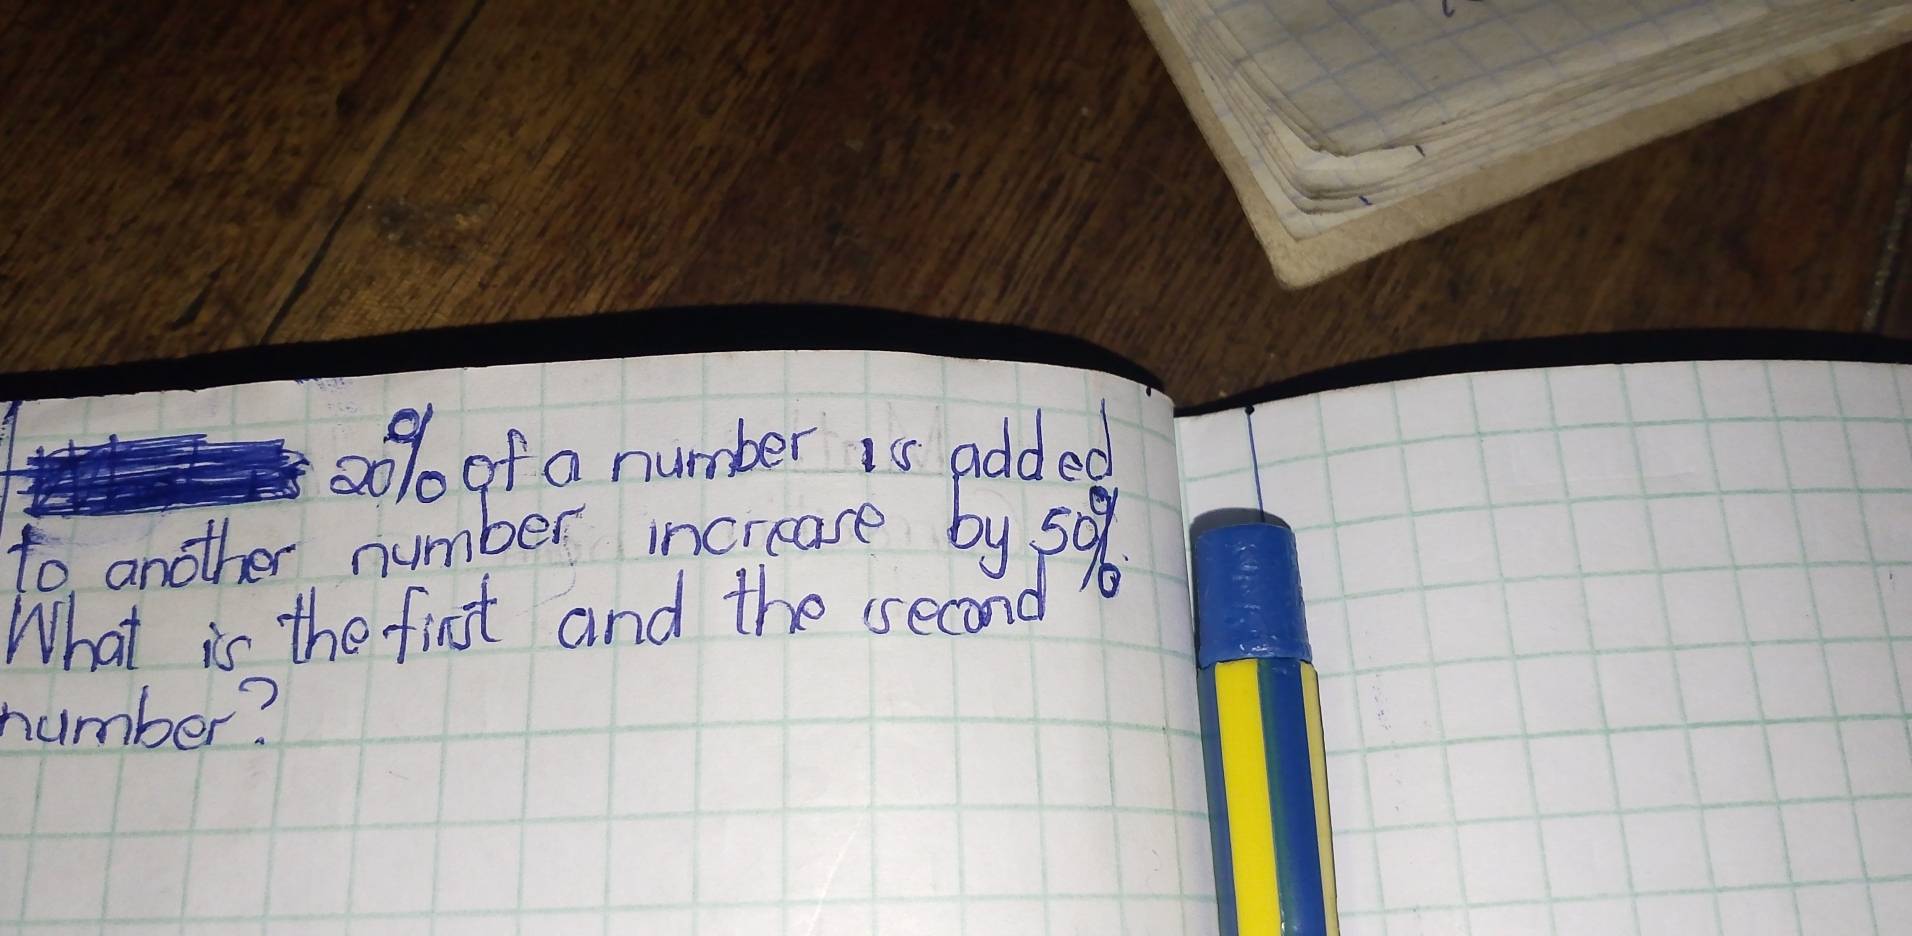 20% of a number is added
to another number increase by 50%.
What is the first and the second
number?